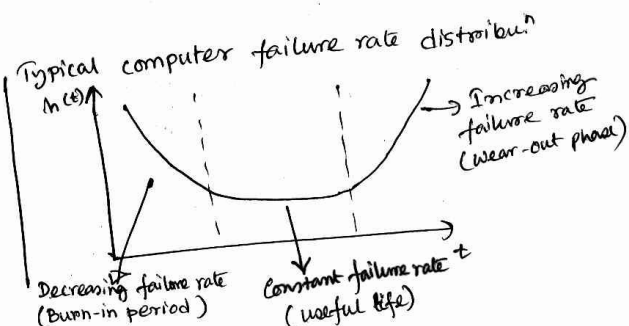 Typical computer failure rate distribuⁿ
h(t)
Increasing
failure rate
(wear-out phase)
t
Decreasing failure rate
(Burn-in period)
Constant failure rate
(useful life)